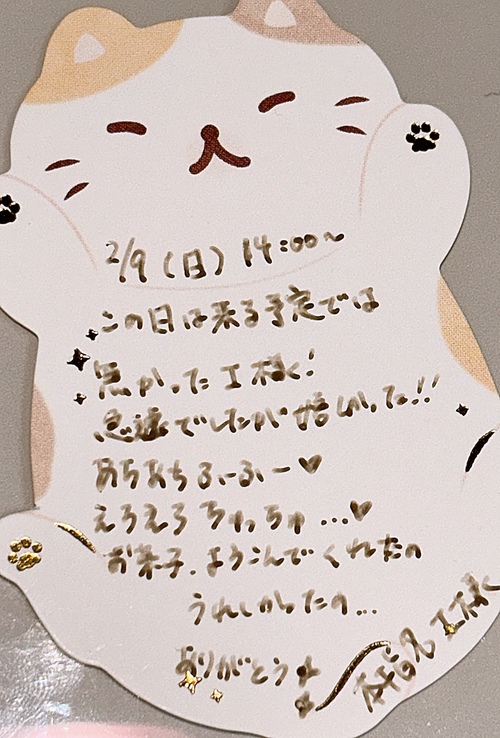 2/9(日) 14:00〜
この日は来る予定では
無かったI様!
急遽でしたが嬉しかった!!
あちあちふーふー♥
えろえろちゅっちゅ...♥
お菓子、よろこんでくれたの
うれしかったの...
ありがとう
I様